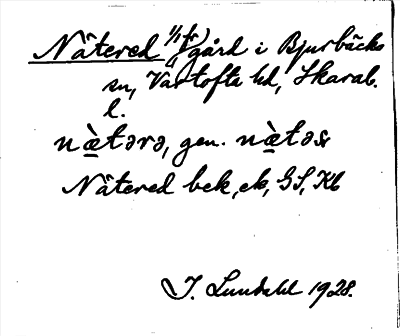 Nätered 1/1 fr gård i Bjurbäcks
sn, Vartofta hd, Skarab.
l.
nä̀tərə, gen. nä̀təs
Nätered bek, ek, GS, Kb
J. Lundahl 1928.